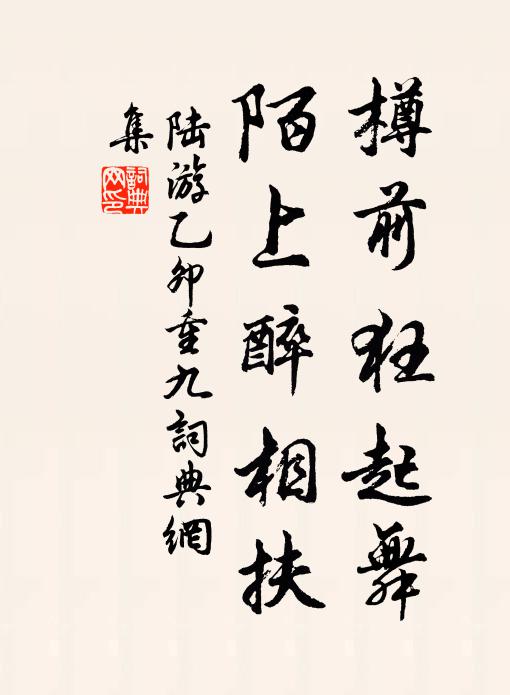 樽前狂起舞
陌上醉相扶
陸游乙卯重九詞典網
集
詞典
网印